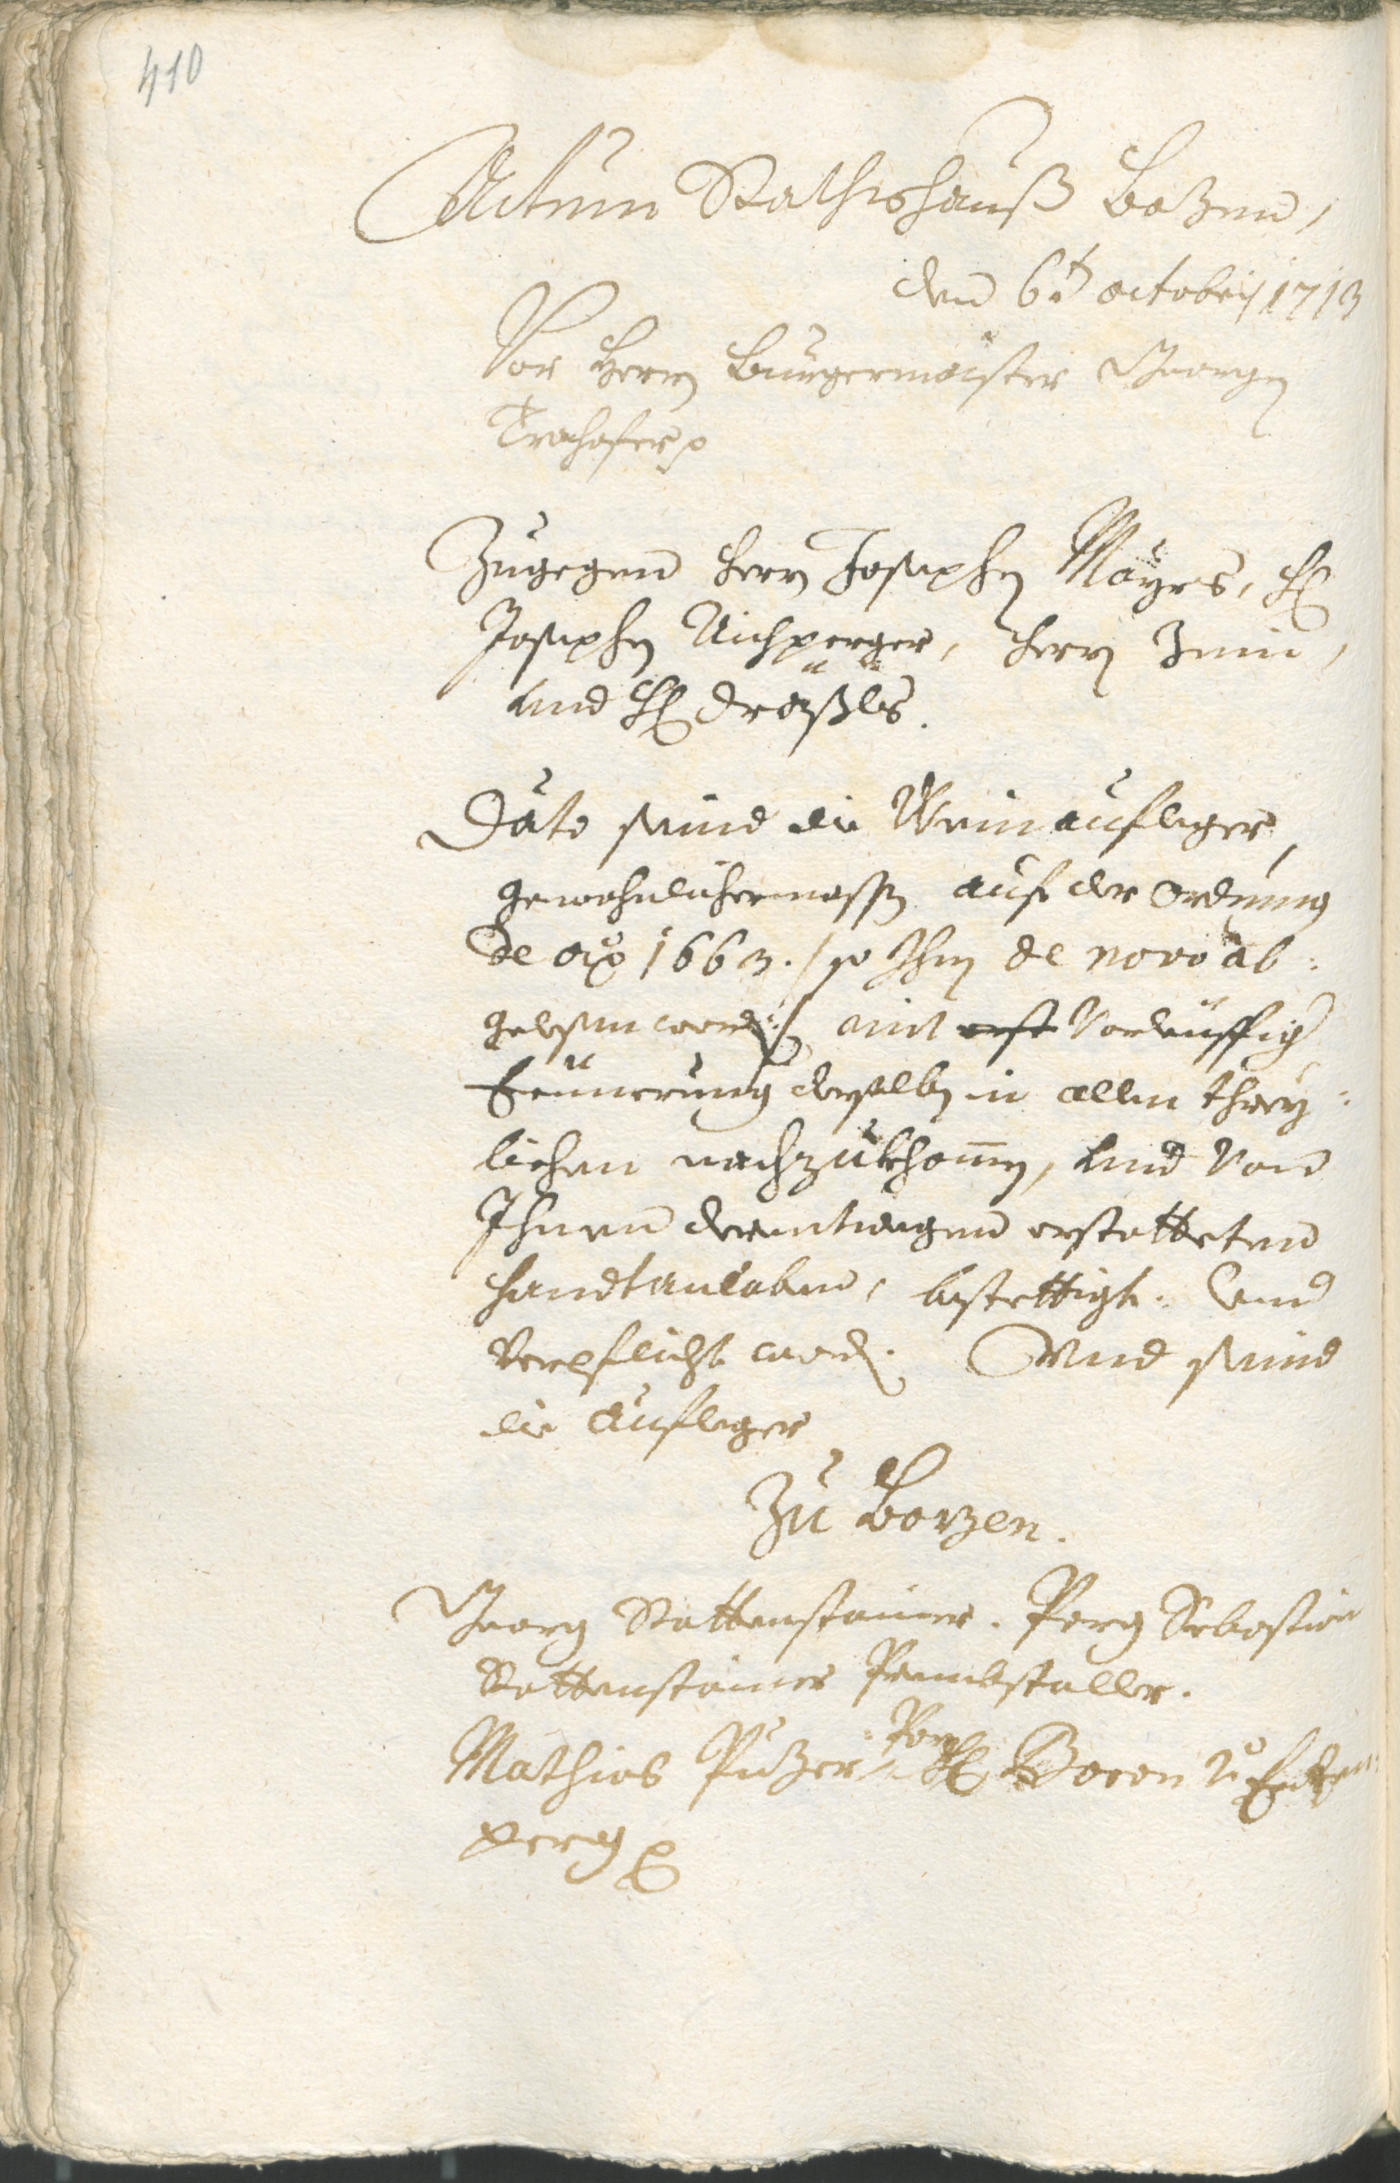 410
Actum Rathshauß Botzen,
den 6.t octobris 1713
Vor Herrn Burgermaister Georgen
Trachafer p
Zugegen Herrn Josephen Mayrs, H.
Josephen Aichperger, Herrn Zeni,
und H. Dräxls.
Dato seind die Weinaufleger
gewohnlichermassen auf der Ordnung
de ao 1663. /: so Ihnen de novo ab:
gelesen worden :/ mit erst vorleüffig
Erinnerung derselben in allen threy:
lichen nachzukhomen, und von
Ihnen derentwegen erstatteten
Handtanloben, bestettigt. und
verpflicht worden. Und seind
die Aufleger
Zu Botzen.
Georg Rottenstainer. Porg Sebastian
Rottenstainer Pembstaller.
Mathias Putzer, Porg H. Baron v.
perg